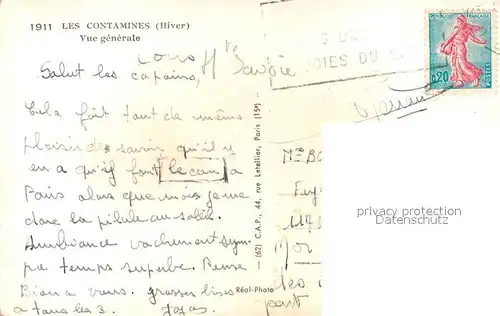 1911 LES CONTAMINES (Hiver)
Vue générale
Hte Savoie
Salut les copains,
Cela fait tant de même
plaisir de savoir qu'il y
en a qui font le con à
Paris alors que moi je me
dore la pilule au soleil.
Ambiance vachement sym-
pa temps superbe. Pense
Bien à vous. grosses bises
à tous les 3.
Réal-Photo
(62) C.A.P., 44, rue Letellier, Paris (15e)
REPUBLIQUE FRANÇAISE
0,20
POSTES
JOIES DU
Mme BO
117
Mor
des
part
privacy protection
Datenschutz